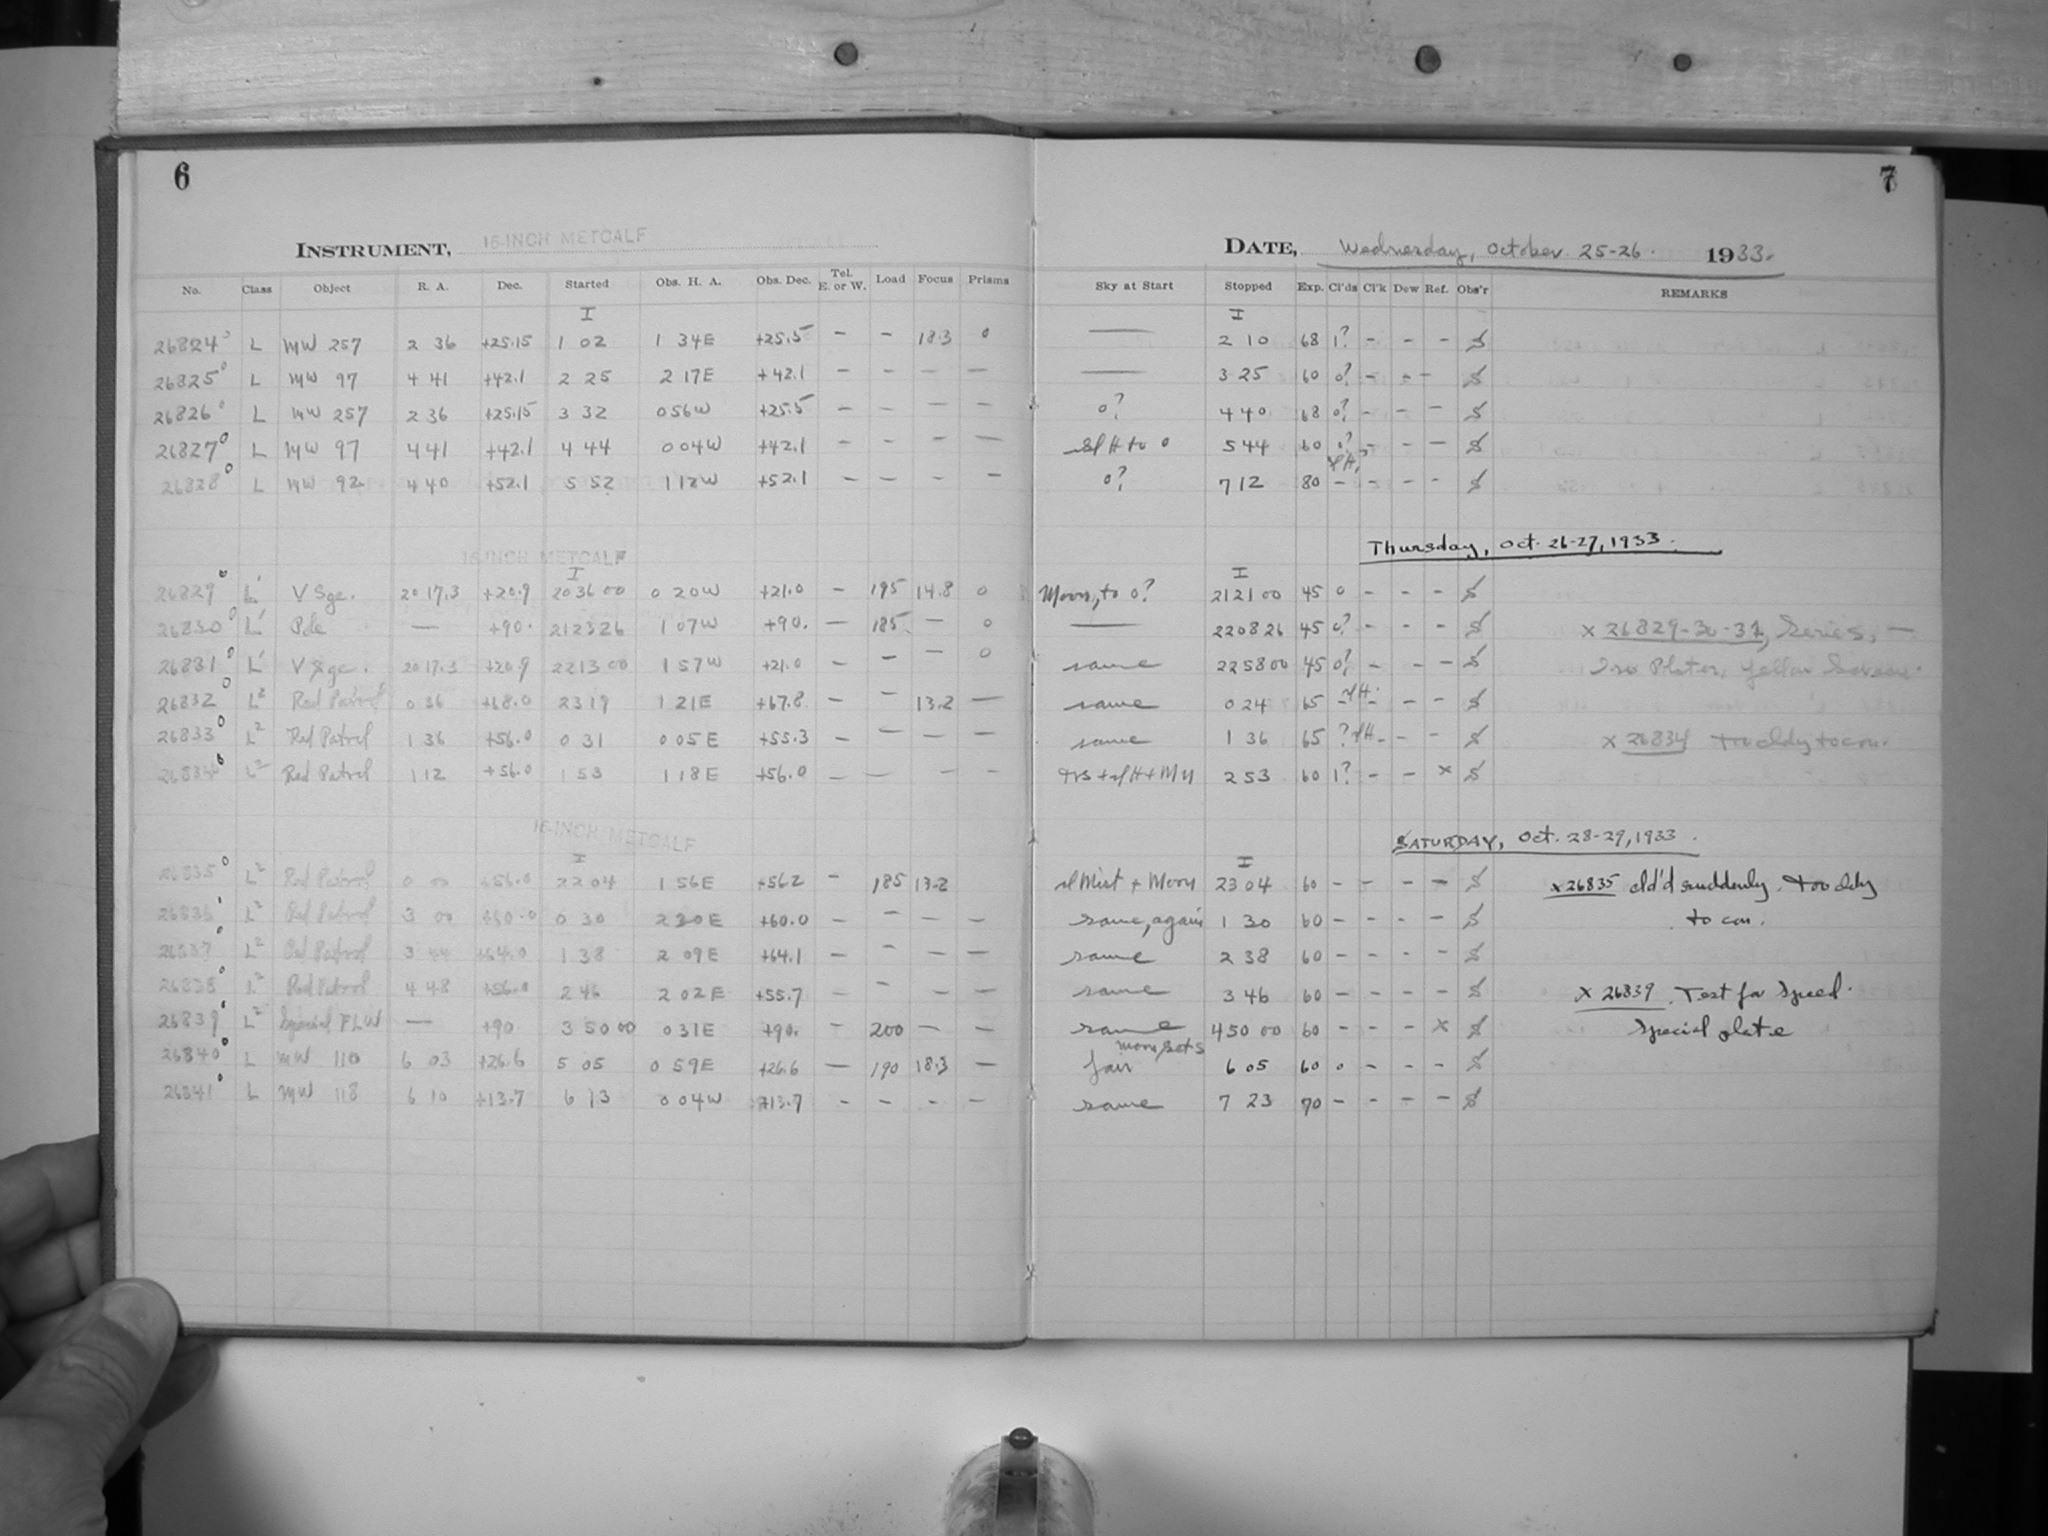 6
7
INSTRUMENT, 16-INCH METCALF
DATE, Wednesday, October 25-26. 1933.
No. Class Object R. A. Dec. Started Obs. H. A. Obs. Dec. Tel. E. or W. Load Focus Prisms Sky at Start Stopped Exp. Cl'ds Cl'k Dew Ref. Obs'r REMARKS
I I
26824 L MW 257 2 36 +25.15 1 02 1 34E +25.5 – – 18.3 0 — 2 10 68 1? – – –
26825 L MW 97 4 41 +42.1 2 25 2 17E +42.1 – – – – — 3 25 60 0? – – –
26826 L MW 257 2 36 +25.15 3 32 0 56W +25.5 – – – – 0? 4 40 68 0? – – –
26827 L MW 97 4 41 +42.1 4 44 0 04W +42.1 – – – – slH to 0 5 44 60 0? – – –
26828 L MW 92 4 40 +52.1 5 52 1 12W +52.1 – – – – 0? 7 12 80 slH? – – – –
Thursday, Oct. 26-27, 1933.
16-INCH METCALF
I I
26829 L' V Sge. 20 17.3 +20.9 20 36 00 0 20W +21.0 – 195 14.8 0 Moon, to 0? 21 21 00 45 0 – – –
26830 L' Pole — +90. 21 23 26 1 07W +90. – 185 – 0 — 22 08 26 45 0? – – – x 26829-30-31, Series, —
26831 L' V Sge. 20 17.3 +20.9 22 13 00 1 57W +21.0 – – – 0 same 22 58 00 45 0? – – – Iso Plates, Yellow Screen.
26832 L² Red Patrol 0 36 +68.0 23 19 1 21E +67.8 – – 13.2 – same 0 24 65 slH. – – – –
26833 L² Red Patrol 1 36 +56.0 0 31 0 05E +55.3 – – – – same 1 36 65 ?slH – – – x 26834 too cldy to con.
26834 L² Red Patrol 1 12 +56.0 1 53 1 18E +56.0 – – – – trs + slH + My 2 53 60 1? – – x
16-INCH METCALF
SATURDAY, Oct. 28-29, 1933.
I I
26835 L² Red Patrol 0 00 +56.0 22 04 1 56E +56.2 – 185 13.2 sl Mist + Moon 23 04 60 – – – – x 26835 cld'd suddenly. Too cldy
26836 L² Red Patrol 3 00 +60.0 0 30 2 30E +60.0 – – – – same, again 1 30 60 – – – – to con.
26837 L² Red Patrol 3 44 +64.0 1 38 2 09E +64.1 – – – – same 2 38 60 – – – –
26838 L² Red Patrol 4 48 +56.0 2 46 2 02E +55.7 – – – – same 3 46 60 – – – – x 26839. Test for speed.
26839 L² Special FLW — +90 3 50 00 0 31E +90. – 200 – – same 4 50 00 60 – – – x Special plate
26840 L MW 110 6 03 +26.6 5 05 0 59E +26.6 – 190 18.3 – fair moon sets 6 05 60 0 – – –
26841 L MW 118 6 10 +13.7 6 13 0 04W +13.7 – – – – same 7 23 70 – – – –